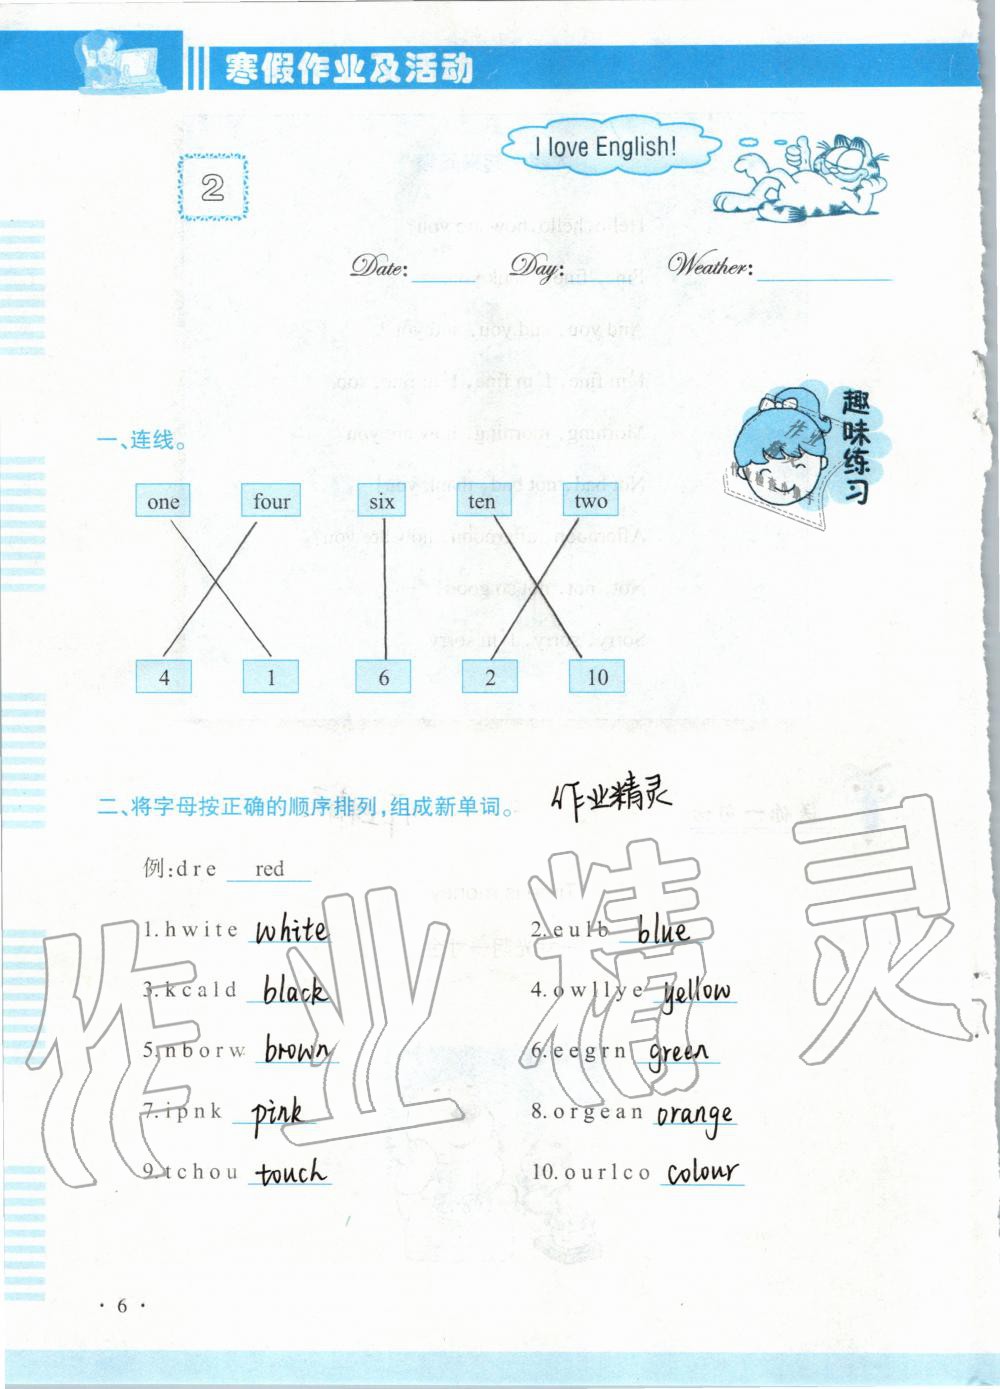 寒假作业及活动
I love English!
2
Date: Day: Weather:
趣味练习
一、连线。
one four six ten two
4 1 6 2 10
二、将字母按正确的顺序排列,组成新单词。 作业精灵
例:d r e red
1. h w i t e white 2. e u l b blue
3. k c a l d black 4. o w l l y e yellow
5. n b o r w brown 6. e e g r n green
7. i p n k pink 8. o r g e a n orange
9. t c h o u touch 10. o u r l c o colour
作业精灵
· 6 ·